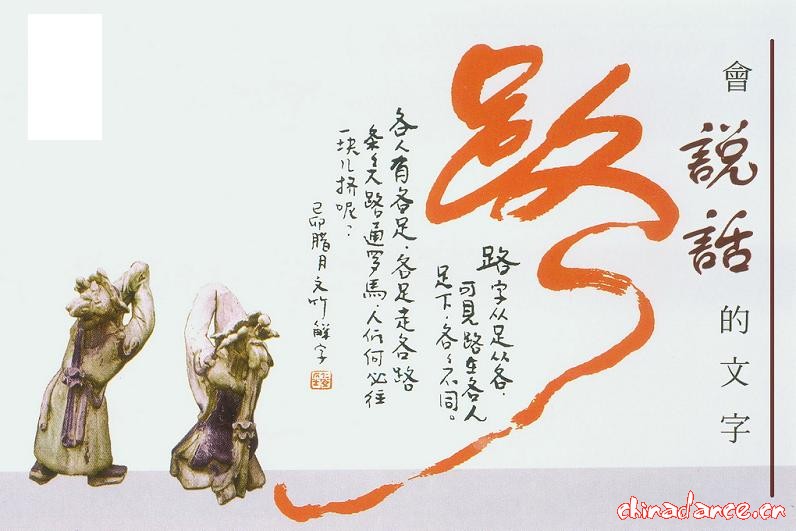 會說話的文字
路
路字从足从各.
可見路在各人
足下.各各不同。
各人有各足.各足走各路
条条大路通罗馬.人们何必往
一块儿挤呢?
己卯腊月文竹解字
chinadance.cn